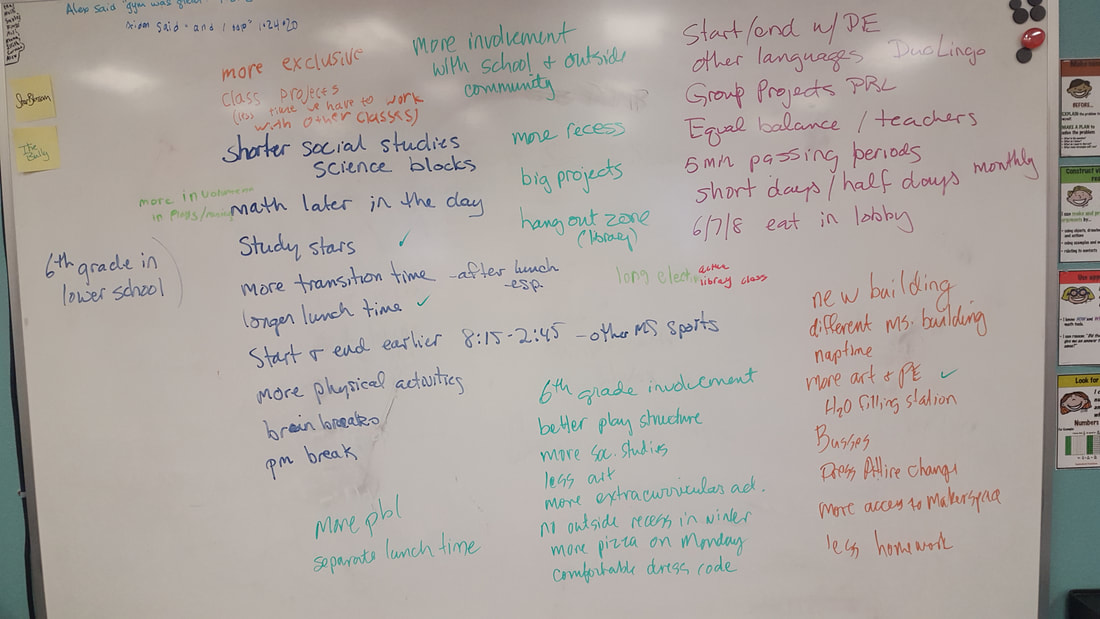 Alex said "gym was great"
said "and I oop" 1.24.20
more exclusive
class projects
(less time we have to work
with other classes)
shorter social studies
science blocks
more involvement
in
math later in the day
Study stars ✓
more transition time - after lunch
- esp.
longer lunch time ✓
Start & end earlier 8:15-2:45 - other MS sports
more physical activities
brain breaks
pm break
6th grade in
lower school
more involvement
with school & outside
community
more recess
big projects
hang out zone
(library)
long election
library class
Start/end w/ PE
other languages DuoLingo
Group Projects PBL
Equal balance / teachers
5 min passing periods
short days / half days monthly
6/7/8 eat in lobby
new building
different ms. building
naptime
more art & PE ✓
H2O filling station
Busses
Dress Attire change
more access to makerspace
less homework
6th grade involvement
better play structure
more soc. studies
less art
more extracurricular ad.
no outside recess in winter
more pizza on Monday
comfortable dress code
more pbl
separate lunch time
BEFORE...
Construct
Look for
Numbers